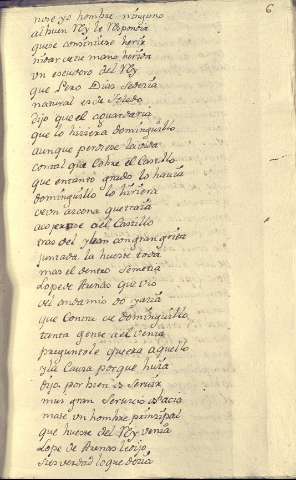 6
no se yo hombre ninguno
al buen Rey le Respondia
que se consintiese herir
ni dar de tu mano herida
un escudero del Rey
que Pero Diaz se decia
natural era de Toledo
dijo que el aguardaria
que lo hiriera dominguillo
aunque perdiese la vida
con tal que Cobre el Castillo
que en tanto grado lo hauia
dominguillo lo hiriera
de un azcona que traia
acojense al Castillo
tras del yban con gran grita
juntada la hueste toda
mas el dentro se metia
Lope de Arenas que vio
del andamio do yazia
que Contra de dominguillo
tanta gente ael venia
preguntole que era aquello
y la Causa porque huia
dijo por hacer os Serui
muy gran Seruicio os hacia
mate un hombre principal
que hueste del Rey venia
Lope de Arenas le dijo
si es verdad lo que decia